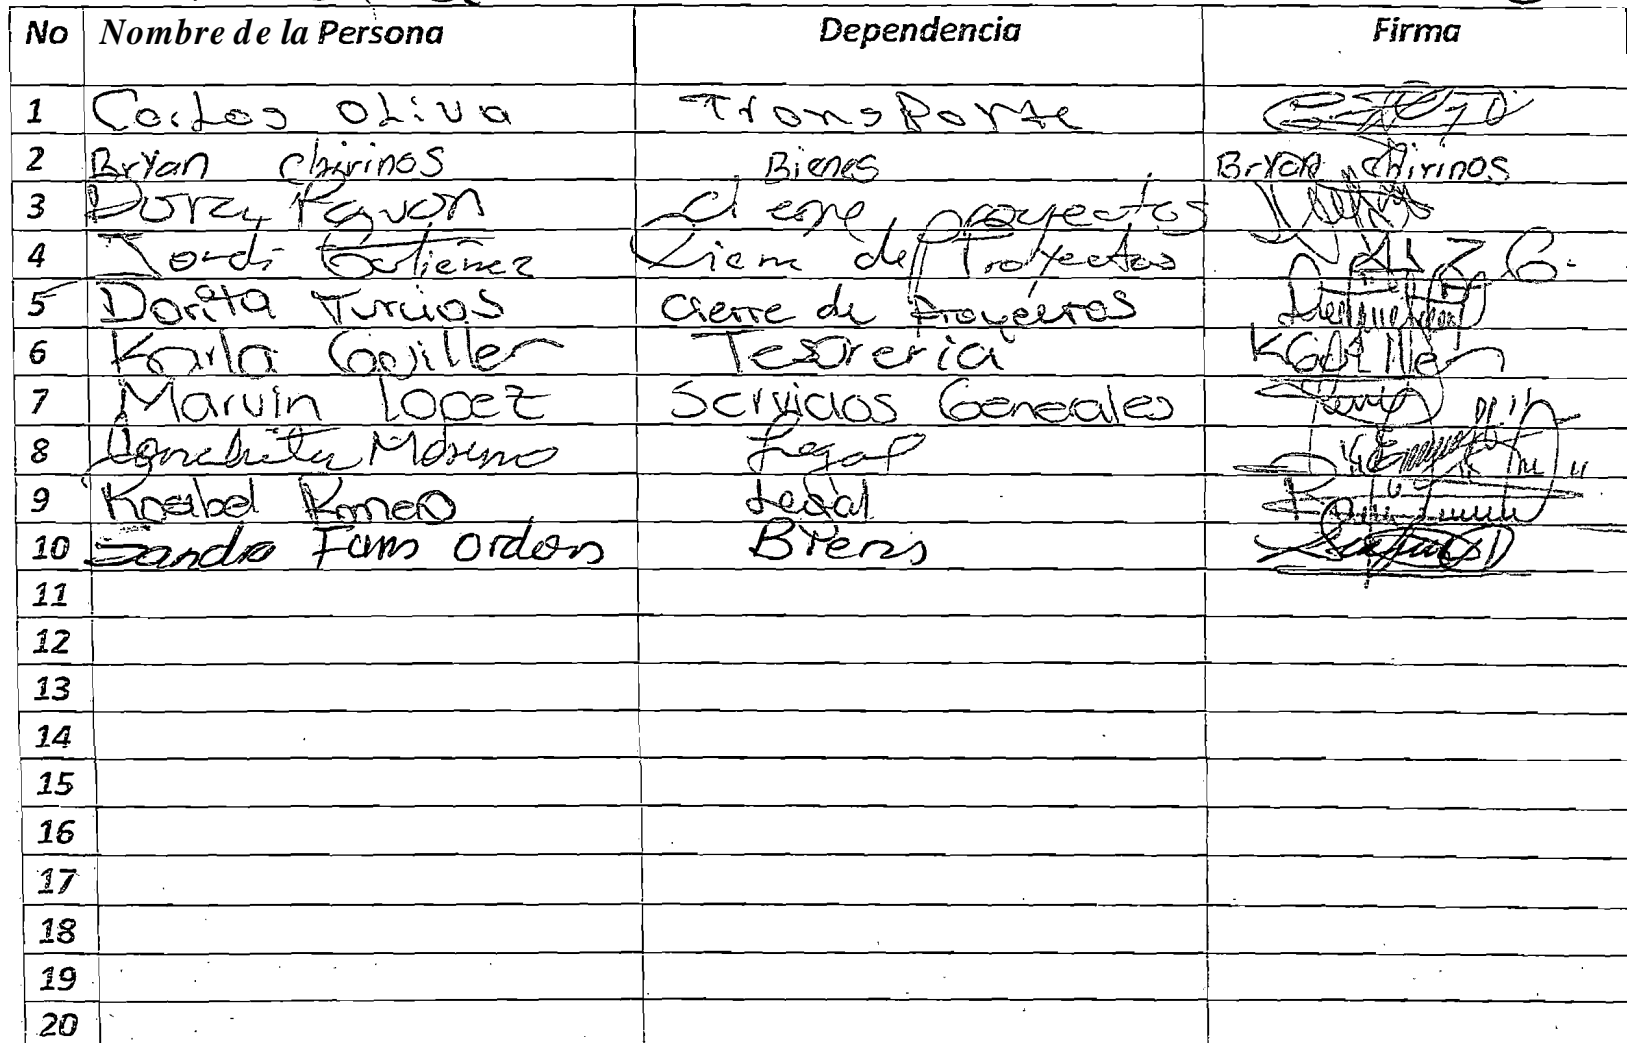 No Nombre de la Persona Dependencia Firma
1 Carlos Oliva Transporte
2 Bryan Chirinos Bienes Bryan Chirinos
3 Pavon Cierre proyectos
4 Jordi Gutierrez Cierre de Proyectos
5 Dorita Turcios Cierre de Proyectos
6 Karla Guillen Tesoreria KGuillen
7 Marvin Lopez Servicios Generales
8 Conchita Moreno Legal
9 Romero Legal
10 Sandra Ordon Bienes
11
12
13
14
15
16
17
18
19
20